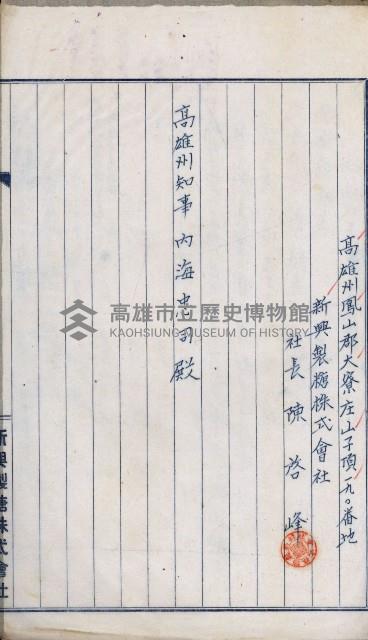 高雄州鳳山郡大寮庄山子頂一九〇番地
新興製糖株式會社
社長 陳啓峰
高雄州知事 內海忠司 殿
新興製糖株式會社
高雄市立歷史博物館
KAOHSIUNG MUSEUM OF HISTORY